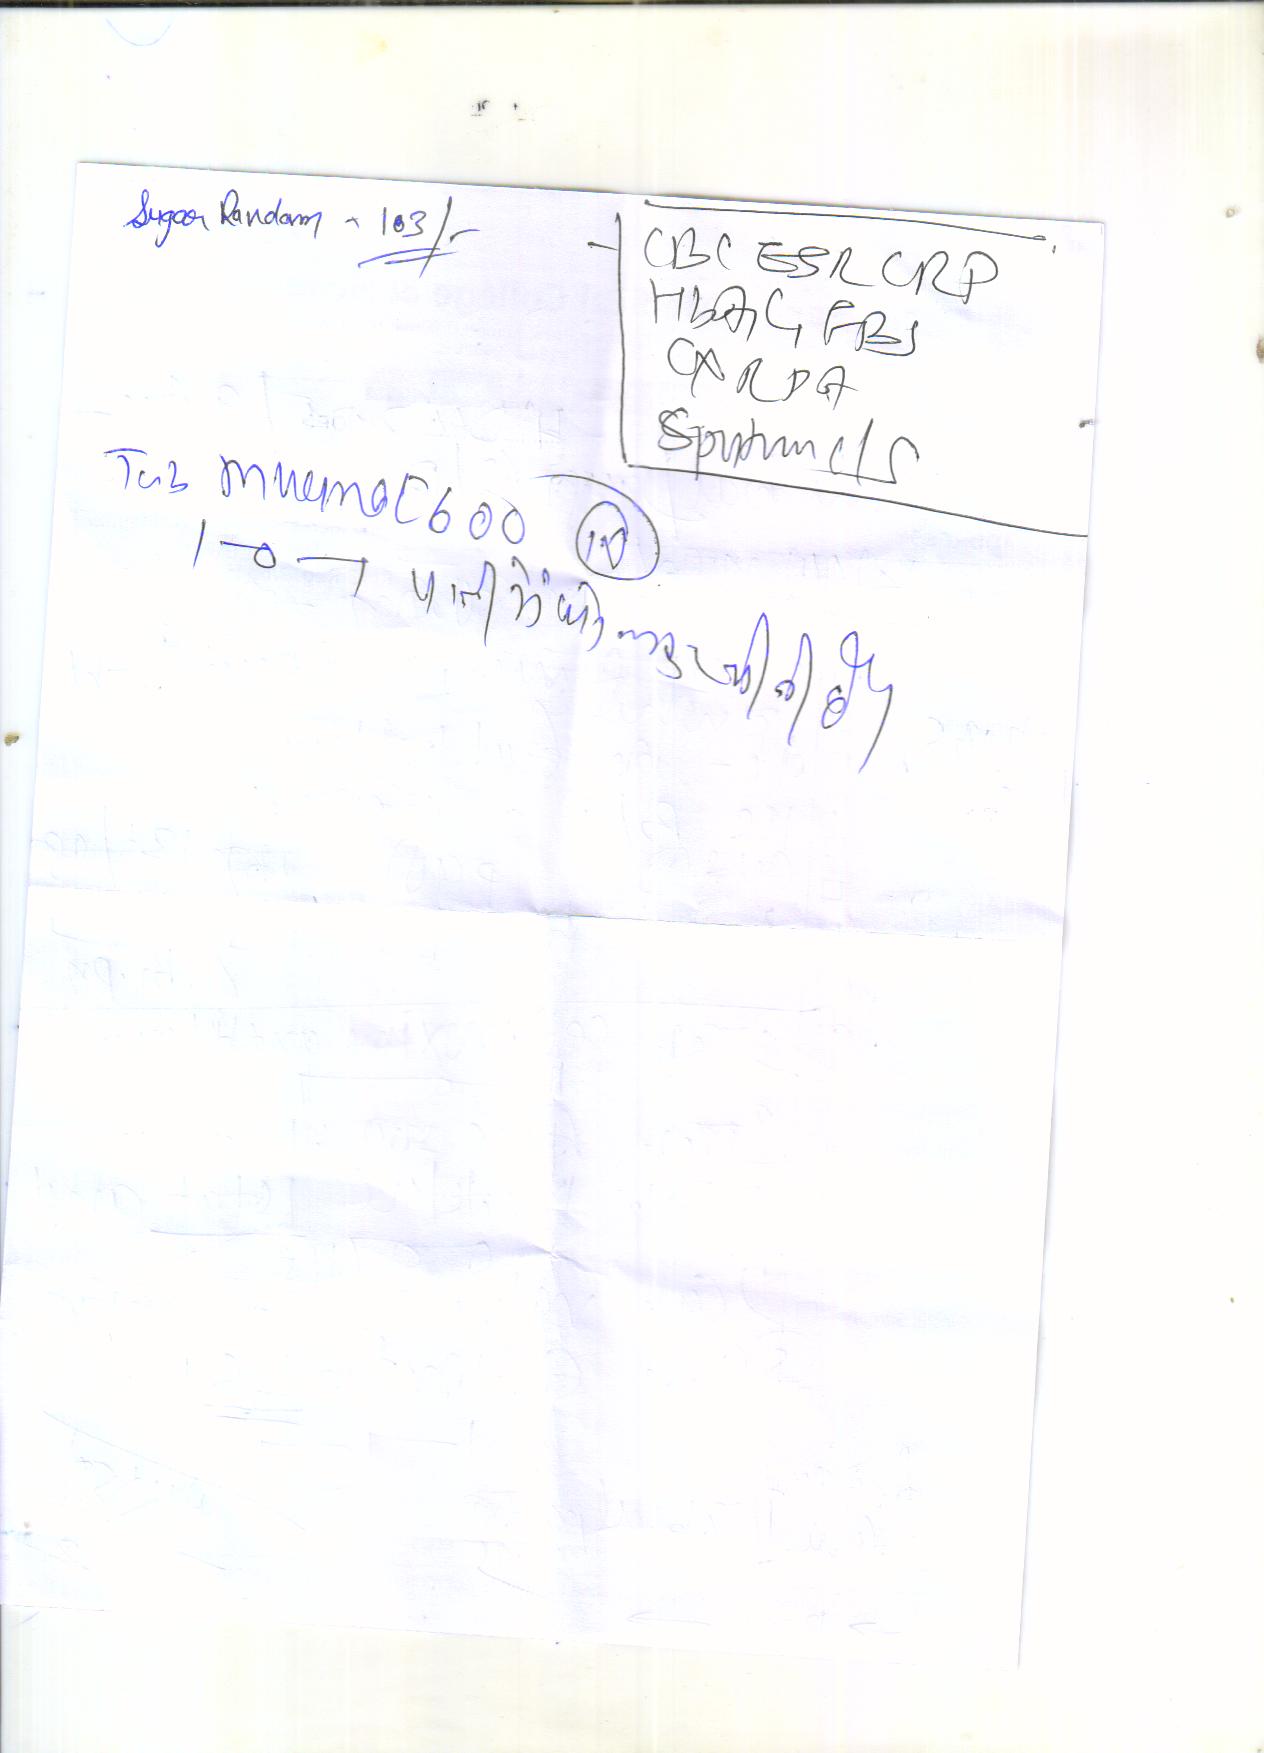 Sugar Random - 103/-
CBC ESR CRP
HbA1C FBS
CXR PA
Sputum c/s
Tab Mucinac 600 10
1-0-1 पानी में घोल